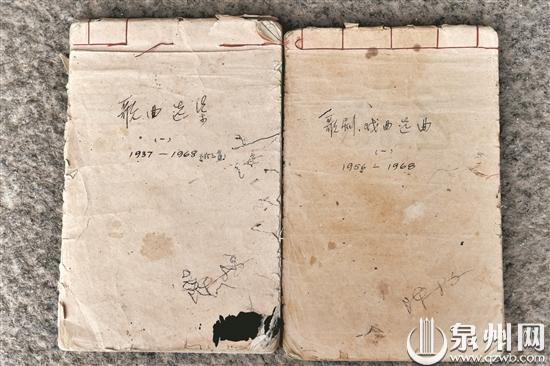 歌曲选集
(一)
1937-1968
歌剧、戏曲选曲
(一)
1956-1968
泉州网
www.qzwb.com